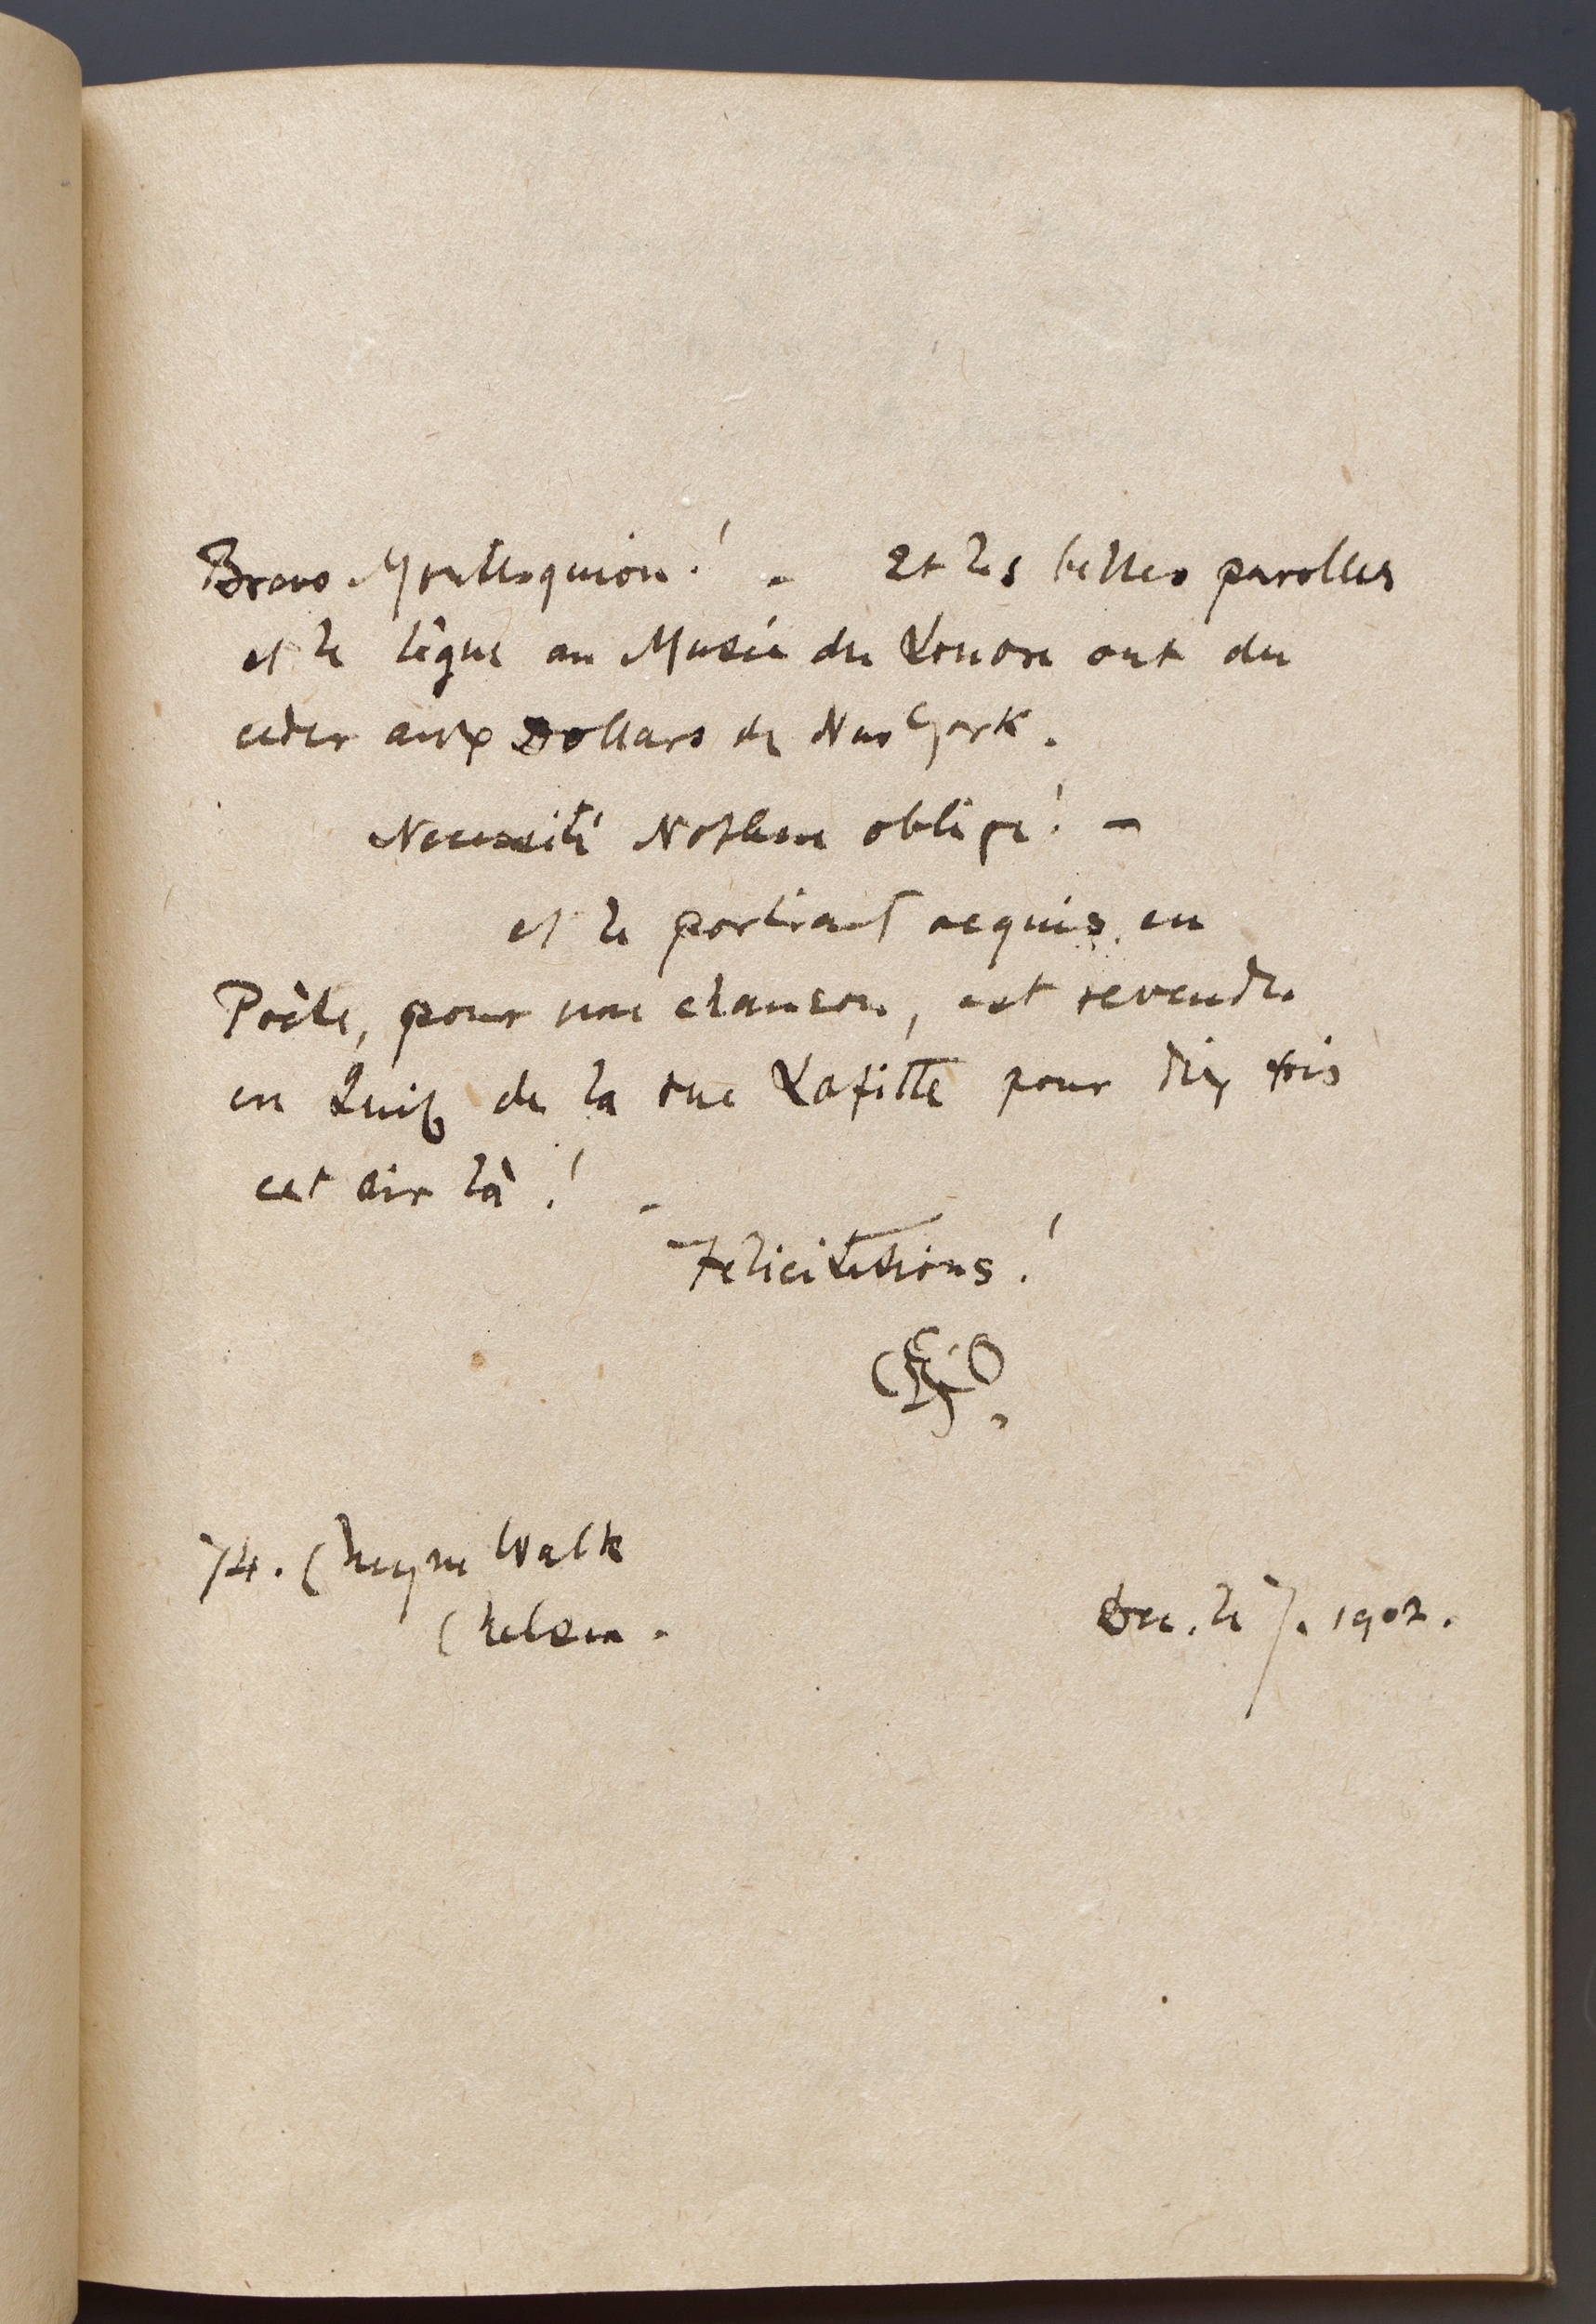 Bravo Montesquiou! - Et les belles parolles
et le lègue au Musée du Louvre ont du
ceder aux Dollars de New York.
Necessité Noblesse oblige! -
et le portrait acquis, en
Poète, pour une chanson, est revendu
en Juif de la rue Lafitte pour dix fois
cet air là! -
Felicitations!
74. Cheyne Walk
Chelsea.
Dec. le 7. 1902.